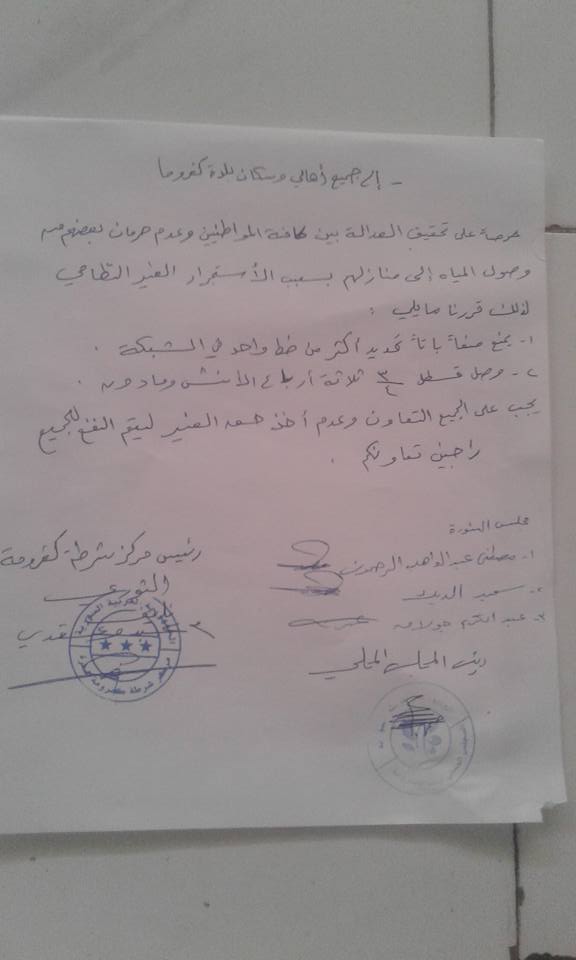 - إلى جميع أهالي وسكان بلدة كفروما
حرصاً على تحقيق العدالة بين كافة المواطنين وعدم حرمان بعضهم من
وصول المياه إلى منازلهم بسبب الأستجرار الغير النظامي
لذلك قررنا مايلي :
١- يمنع منعاً باتاً تمديد أكثر من خط واحد في الشبكة .
٢- وصل قسطل ٣/٤ ثلاثة أرباع الأنش وما دون .
يجب على الجميع التعاون وعدم أخذ حصة الغير ليتم النفع للجميع
راجين تعاونكم .
مجلس الشورة
١- مصطفى عبد الواحد الرحمون
٢- سعيد الديك
٣- عبد الكريم
رئيس المجلس المحلي
رئيس مركز شرطة كفرومة
الثوري